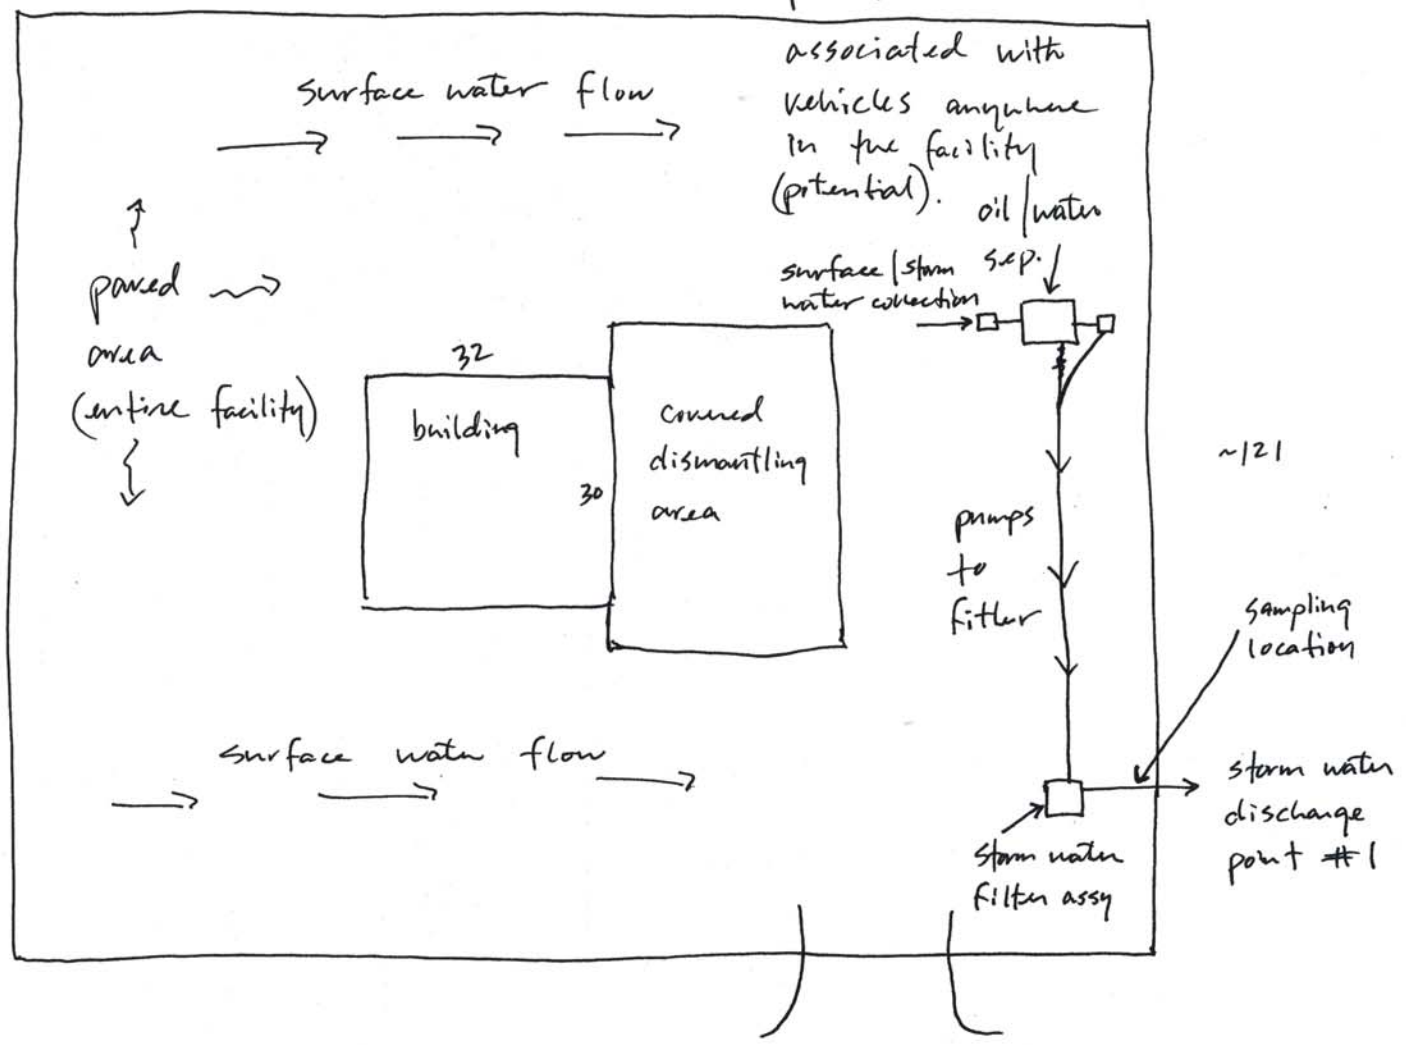 associated with
vehicles anywhere
in the facility
(potential).
surface water flow
oil/water
sep.
surface/storm
water collection
paved
area
(entire facility)
32
building
30
covered
dismantling
area
~121
pumps
to
fitler
sampling
location
surface water flow
storm water
discharge
point #1
storm water
filter assy